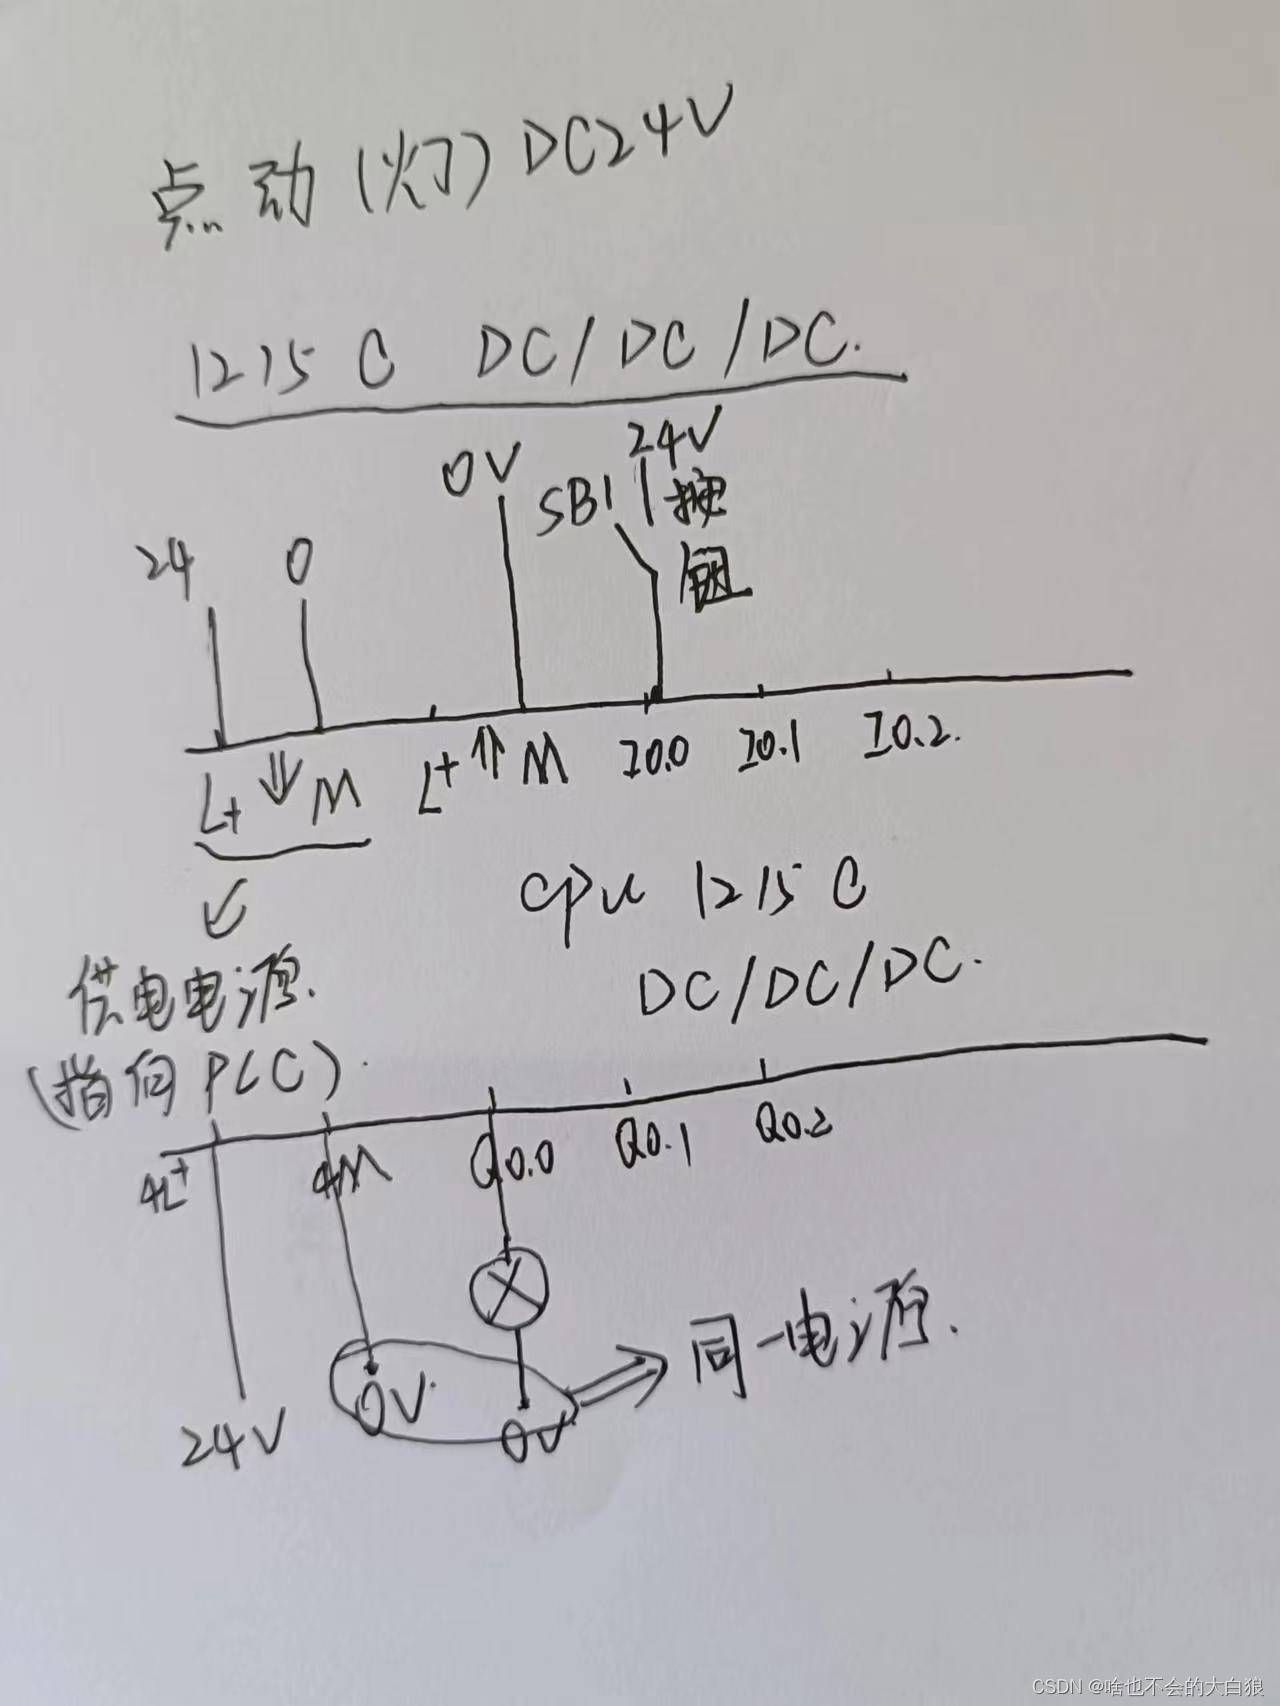 点动(灯) DC24V
1215 C DC/DC/DC.
24 0 0V SB1 24V
按
钮
L+ M L+ M I0.0 I0.1 I0.2.
CPU 1215 C
DC/DC/DC.
供电电源.
(指向PLC).
4L+ 4M Q0.0 Q0.1 Q0.2
24V 0V. 0V
同一电源.
CSDN @啥也不会的大白狼